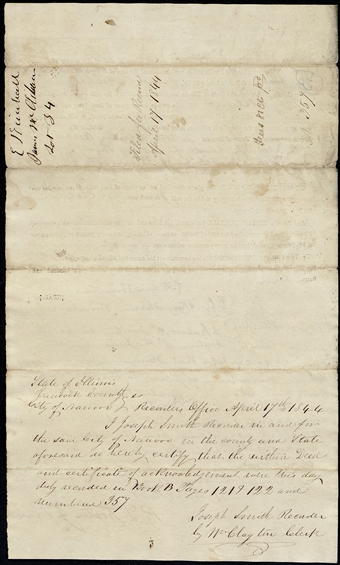 E Kimball
James McClelan
Lot 34
Filed for Record
April 17 1844
Fees 81 Cts pd
No 357
State of Illinois
Hancock County ss
City of Nauvoo Recorders Office April 17th 1844
I Joseph Smith Recorder in and for
the said City of Nauvoo in the county and State
aforesaid do hereby certify that the within Deed
and certificate of acknowledgement were this day
duly recorded in Book B Pages 121 & 122 and
numbered 357
Joseph Smith Recorder
by Wm Clayton Clerk